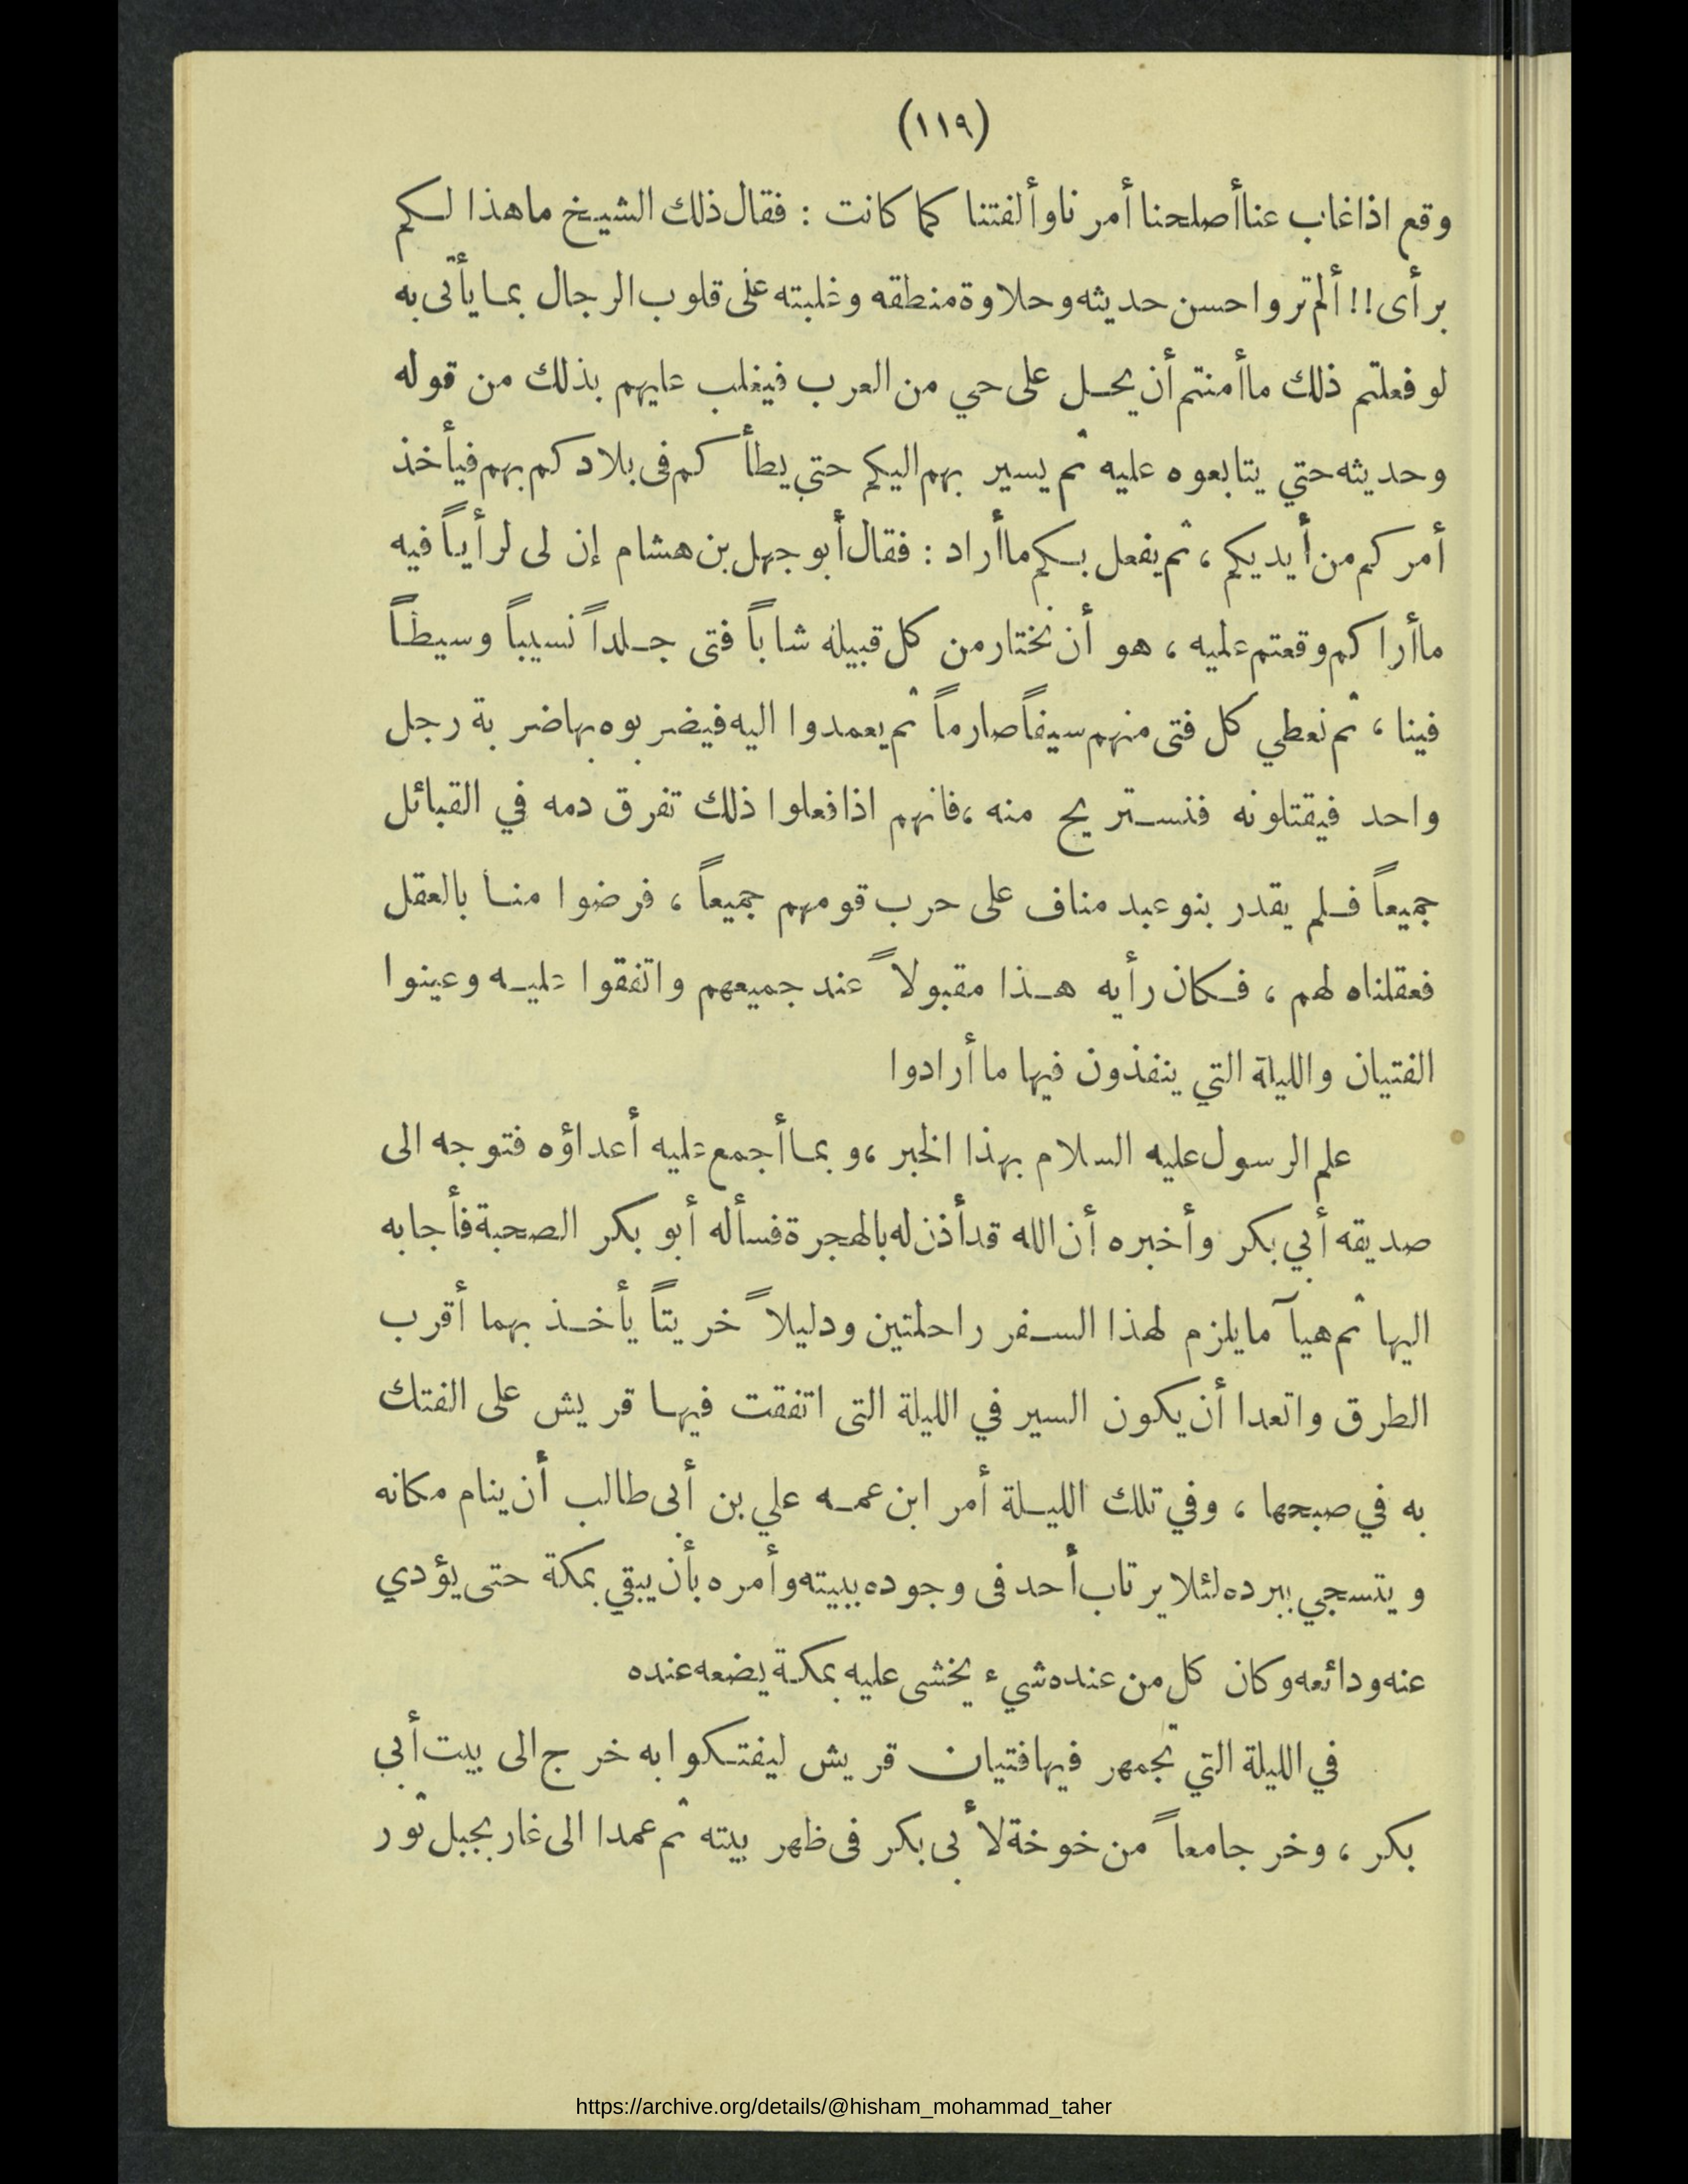 (١١٩)
وقع اذا غاب عنا أصلحنا أمرنا وألفتنا كما كانت : فقال ذلك الشيخ ما هذا لكم
برأى !! ألم تروا حسن حديثه وحلاوة منطقه وغلبته على قلوب الرجال بما يأتى به
لو فعلتم ذلك ما أمنتم أن يحل على حي من العرب فيغلب عليهم بذلك من قوله
وحديثه حتي يتابعوه عليه ثم يسير بهم اليكم حتي يطأ كم فى بلادكم بهم فيأخذ
أمركم من أيديكم ، ثم يفعل بكم ما أراد : فقال أبو جهل بن هشام إن لى لرأياً فيه
ما أراكم وقعتم عليه ، هو أن نختار من كل قبيلة شاباً فتى جلداً نسيباً وسيطاً
فينا ، ثم نعطي كل فتى منهم سيفاً صارماً ثم يعمدوا اليه فيضربوه بها ضربة رجل
واحد فيقتلونه فنستريح منه ، فانهم اذا فعلوا ذلك تفرق دمه في القبائل
جميعاً فلم يقدر بنو عبد مناف على حرب قومهم جميعاً ، فرضوا منا بالعقل
فعقلناه لهم ، فكان رأيه هذا مقبولاً عند جميعهم واتفقوا عليه وعينوا
الفتيان والليلة التي ينفذون فيها ما أرادوا
علم الرسول عليه السلام بهذا الخبر ، وبما أجمع عليه أعداؤه فتوجه الى
صديقه أبي بكر وأخبره أن الله قد أذن له بالهجرة فسأله أبو بكر الصحبة فأجابه
اليها ثم هيآ ما يلزم لهذا السفر راحلتين ودليلاً خريتاً يأخذ بهما أقرب
الطرق واتعدا أن يكون السير في الليلة التى اتفقت فيها قريش على الفتك
به في صبحها ، وفي تلك الليلة أمر ابن عمه علي بن أبى طالب أن ينام مكانه
ويتسجي ببرده لئلا يرتاب أحد فى وجوده ببيته وأمره بأن يبقي بمكة حتى يؤدي
عنه ودائعه وكان كل من عنده شيء يخشى عليه بمكة يضعه عنده
في الليلة التي تجمهر فيها فتيان قريش ليفتكوا به خرج الى بيت أبي
بكر ، وخرجا معاً من خوخة لأبى بكر فى ظهر بيته ثم عمدا الى غار بجبل ثور
https://archive.org/details/@hisham_mohammad_taher